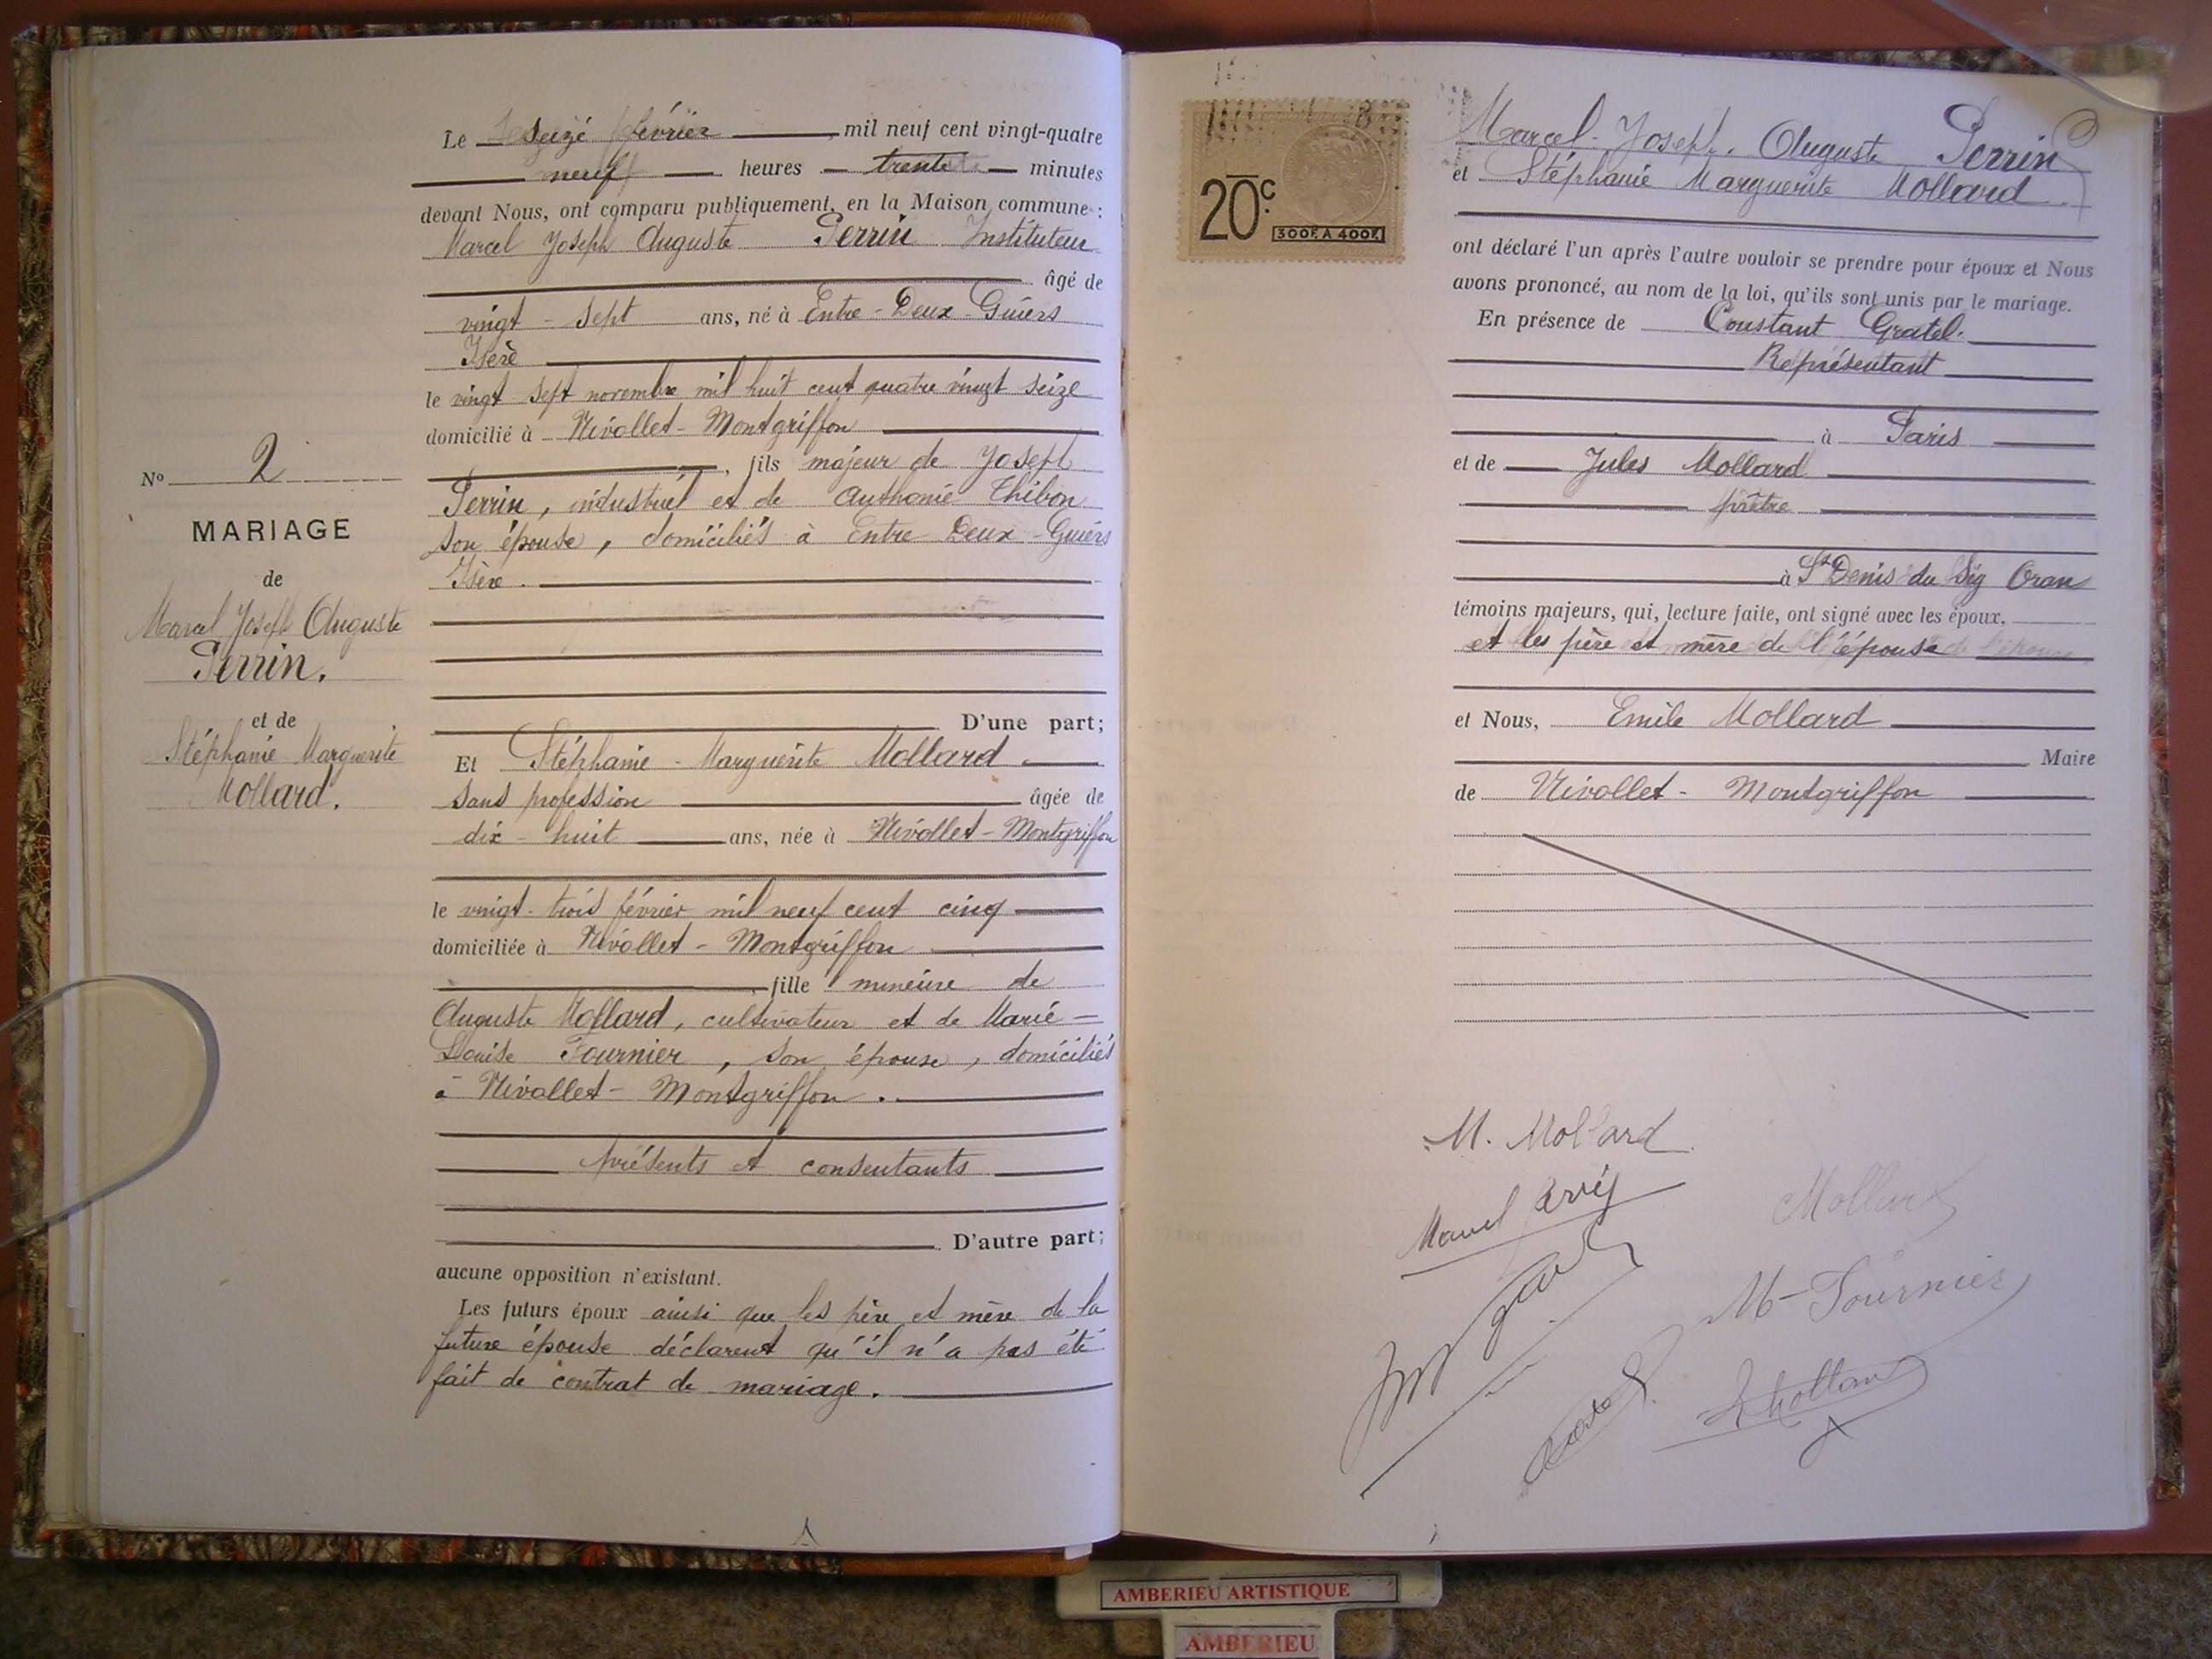 Le seize février mil neuf cent vingt-quatre
neuf heures trente minutes
devant Nous, ont comparu publiquement, en la Maison commune :
Marcel Joseph Auguste Perrin Instituteur
âgé de
vingt-sept ans, né à Entre-Deux-Guiers
Isère
le vingt-sept novembre mil huit cent quatre vingt seize
domicilié à Nivollet-Montgriffon
, fils majeur de Joseph
Perrin, industriel et de Anthonie Thibon
son épouse, domiciliés à Entre Deux-Guiers
Isère.
D'une part;
Et Stéphanie-Marguerite Mollard
sans profession âgée de
dix-huit ans, née à Nivollet-Montgriffon
le vingt-trois février mil neuf cent cinq
domiciliée à Nivollet-Montgriffon
, fille mineure de
Auguste Mollard, cultivateur et de Marie-
Louise Fournier, son épouse, domiciliés
à Nivollet-Montgriffon.
présents et consentants
D'autre part;
aucune opposition n'existant.
Les futurs époux ainsi que les père et mère de la
future épouse déclarent qu'il n'a pas été
fait de contrat de mariage.
No 2
MARIAGE
de
Marcel Joseph Auguste
Perrin.
et de
Stéphanie Marguerite
Mollard.
20c.
300F. A 400F.
Marcel-Joseph-Auguste Perrin
et Stéphanie Marguerite Mollard
ont déclaré l'un après l'autre vouloir se prendre pour époux et Nous
avons prononcé, au nom de la loi, qu'ils sont unis par le mariage.
En présence de Constant Gratel.
Représentant
à Paris
et de Jules Mollard
prêtre
à St Denis du Sig Oran
témoins majeurs, qui, lecture faite, ont signé avec les époux,
et les père et mère de l'épouse
et Nous, Emile Mollard
Maire
de Nivollet-Montgriffon
M. Mollard
Marcel
Mollard
M-Fournier
AMBERIEU ARTISTIQUE
AMBERIEU